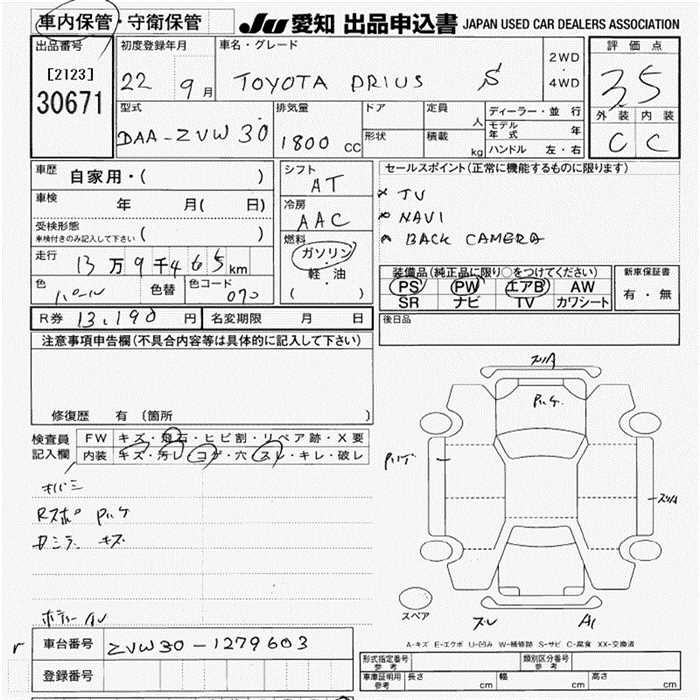 車内保管・守衛保管
JU 愛知 出品申込書 JAPAN USED CAR DEALERS ASSOCIATION
出品番号
[2123]
30671
初度登録年月
22 9月
車名・グレード
TOYOTA PRIUS S
2WD
・
4WD
評価点
3.5
外装 内装
C C
型式
DAA-ZVW30
排気量
1800 CC
ドア
形状
定員 人
積載 kg
ディーラー・並行
モデル年式 年
ハンドル 左・右
車歴 自家用・( )
車検 年 月( 日)
受検形態
車検付きのみ記入して下さい ( )
走行 13万9千465km
色 パール 色替 色コード 070
シフト
AT
冷房
AAC
燃料
ガソリン
・
軽・油
( )
セールスポイント(正常に機能するものに限ります)
× TV
× NAVI
BACK CAMERA
装備品(純正品に限り○をつけてください)
PS PW エアB AW
SR ナビ TV カワシート
新車保証書
有・無
R券 13,190円 名変期限 月 日
後日品
注意事項申告欄(不具合内容等は具体的に記入して下さい)
修復歴 有 〔箇所 〕
検査員記入欄
FW キズ・飛石・ヒビ割・リペア跡・X要
内装 キズ・汚レ・コゲ・穴・スレ・キレ・破レ
キズ
A1
スペア
A-キズ E-エクボ U-凹み W-補修跡 S-サビ C-腐食 XX-交換済
車台番号 ZVW30-1279603
登録番号
形式指定番号
参考
類別区分番号
参考
車庫証明用
参考
長さ cm 幅 cm 高さ cm